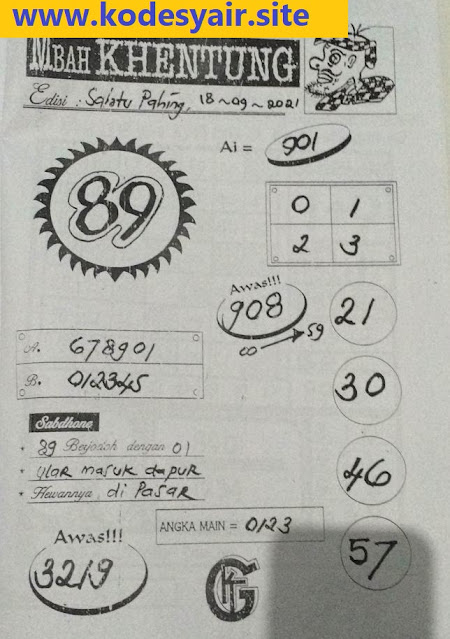 www.kodesyair.site
MBAH KHENTUNG
Edisi : Sabtu Pahing, 18~09~2021
Ai = 901
89
0 1
2 3
Awas!!!
908
00 → 59
21
A. 678901
B. 012345
30
Sabdhone
* 89 Berjodoh dengan 01
* ular masuk dapur
* Hewannya di Pasar
46
ANGKA MAIN = 0123
Awas!!!
3219
57